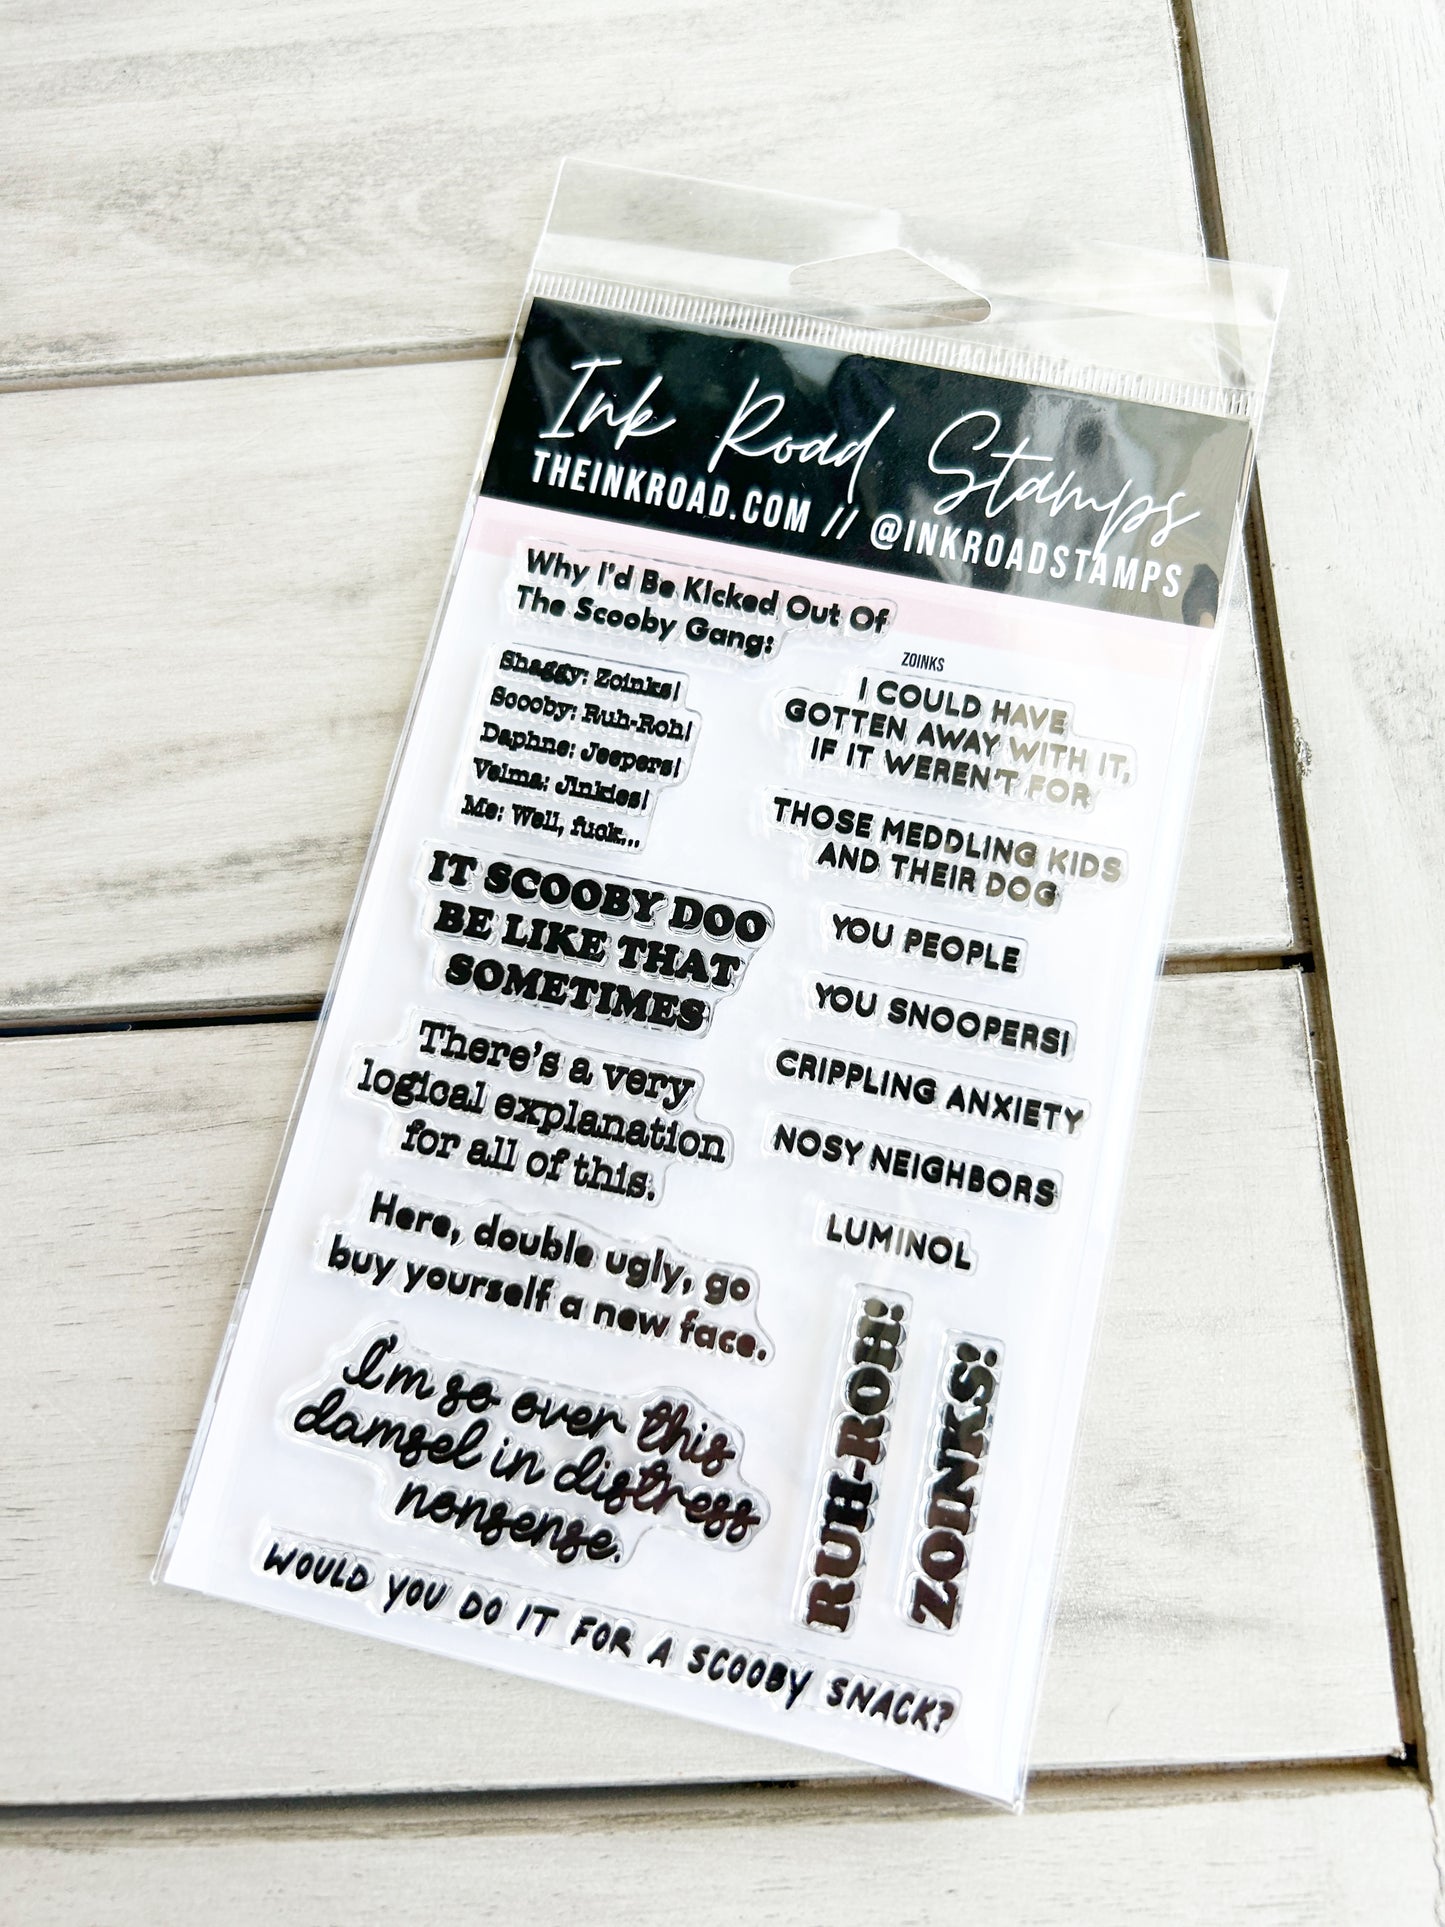 Ink Road Stamps
THEINKROAD.COM // @INKROADSTAMPS
Why I'd Be Kicked Out Of
The Scooby Gang:
Shaggy: Zoinks!
Scooby: Ruh-Roh!
Daphne: Jeepers!
Velma: Jinkies!
Me: Well, fuck...
IT SCOOBY DOO
BE LIKE THAT
SOMETIMES
There's a very
logical explanation
for all of this.
Here, double ugly, go
buy yourself a new face.
I'm so over this
damsel in distress
nonsense.
WOULD YOU DO IT FOR A SCOOBY SNACK?
ZOINKS
I COULD HAVE
GOTTEN AWAY WITH IT,
IF IT WEREN'T FOR
THOSE MEDDLING KIDS
AND THEIR DOG
YOU PEOPLE
YOU SNOOPERS!
CRIPPLING ANXIETY
NOSY NEIGHBORS
LUMINOL
RUH-ROH!
ZOINKS!